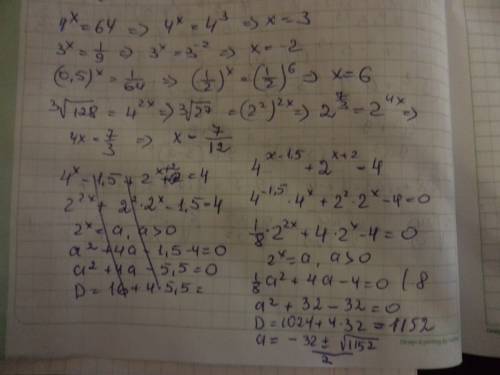 4^x = 64 => 4^x = 4^3 => x = 3
3^x = 1/9 => 3^x = 3^-2 => x = -2
(0,5)^x = 1/64 => (1/2)^x = (1/2)^6 => x = 6
∛128 = 4^2x => ∛2^7 = (2^2)^2x => 2^7/3 = 2^4x =>
4x = 7/3 => x = 7/12
4^x - 1,5 + 2^x+2 = 4
2^2x + 2^2 · 2^x - 1,5 = 4
2^x = a, a > 0
a^2 + 4a - 1,5 - 4 = 0
a^2 + 4a - 5,5 = 0
D = 16 + 4 · 5,5 =
4^x-1,5 + 2^x+2 = 4
4^-1,5 · 4^x + 2^2 · 2^x - 4 = 0
1/8 · 2^2x + 4 · 2^x - 4 = 0
2^x = a, a > 0
1/8 a^2 + 4a - 4 = 0 | · 8
a^2 + 32 - 32 = 0
D = 1024 + 4 · 32 = 1152
a = (-32 ± √1152)/2